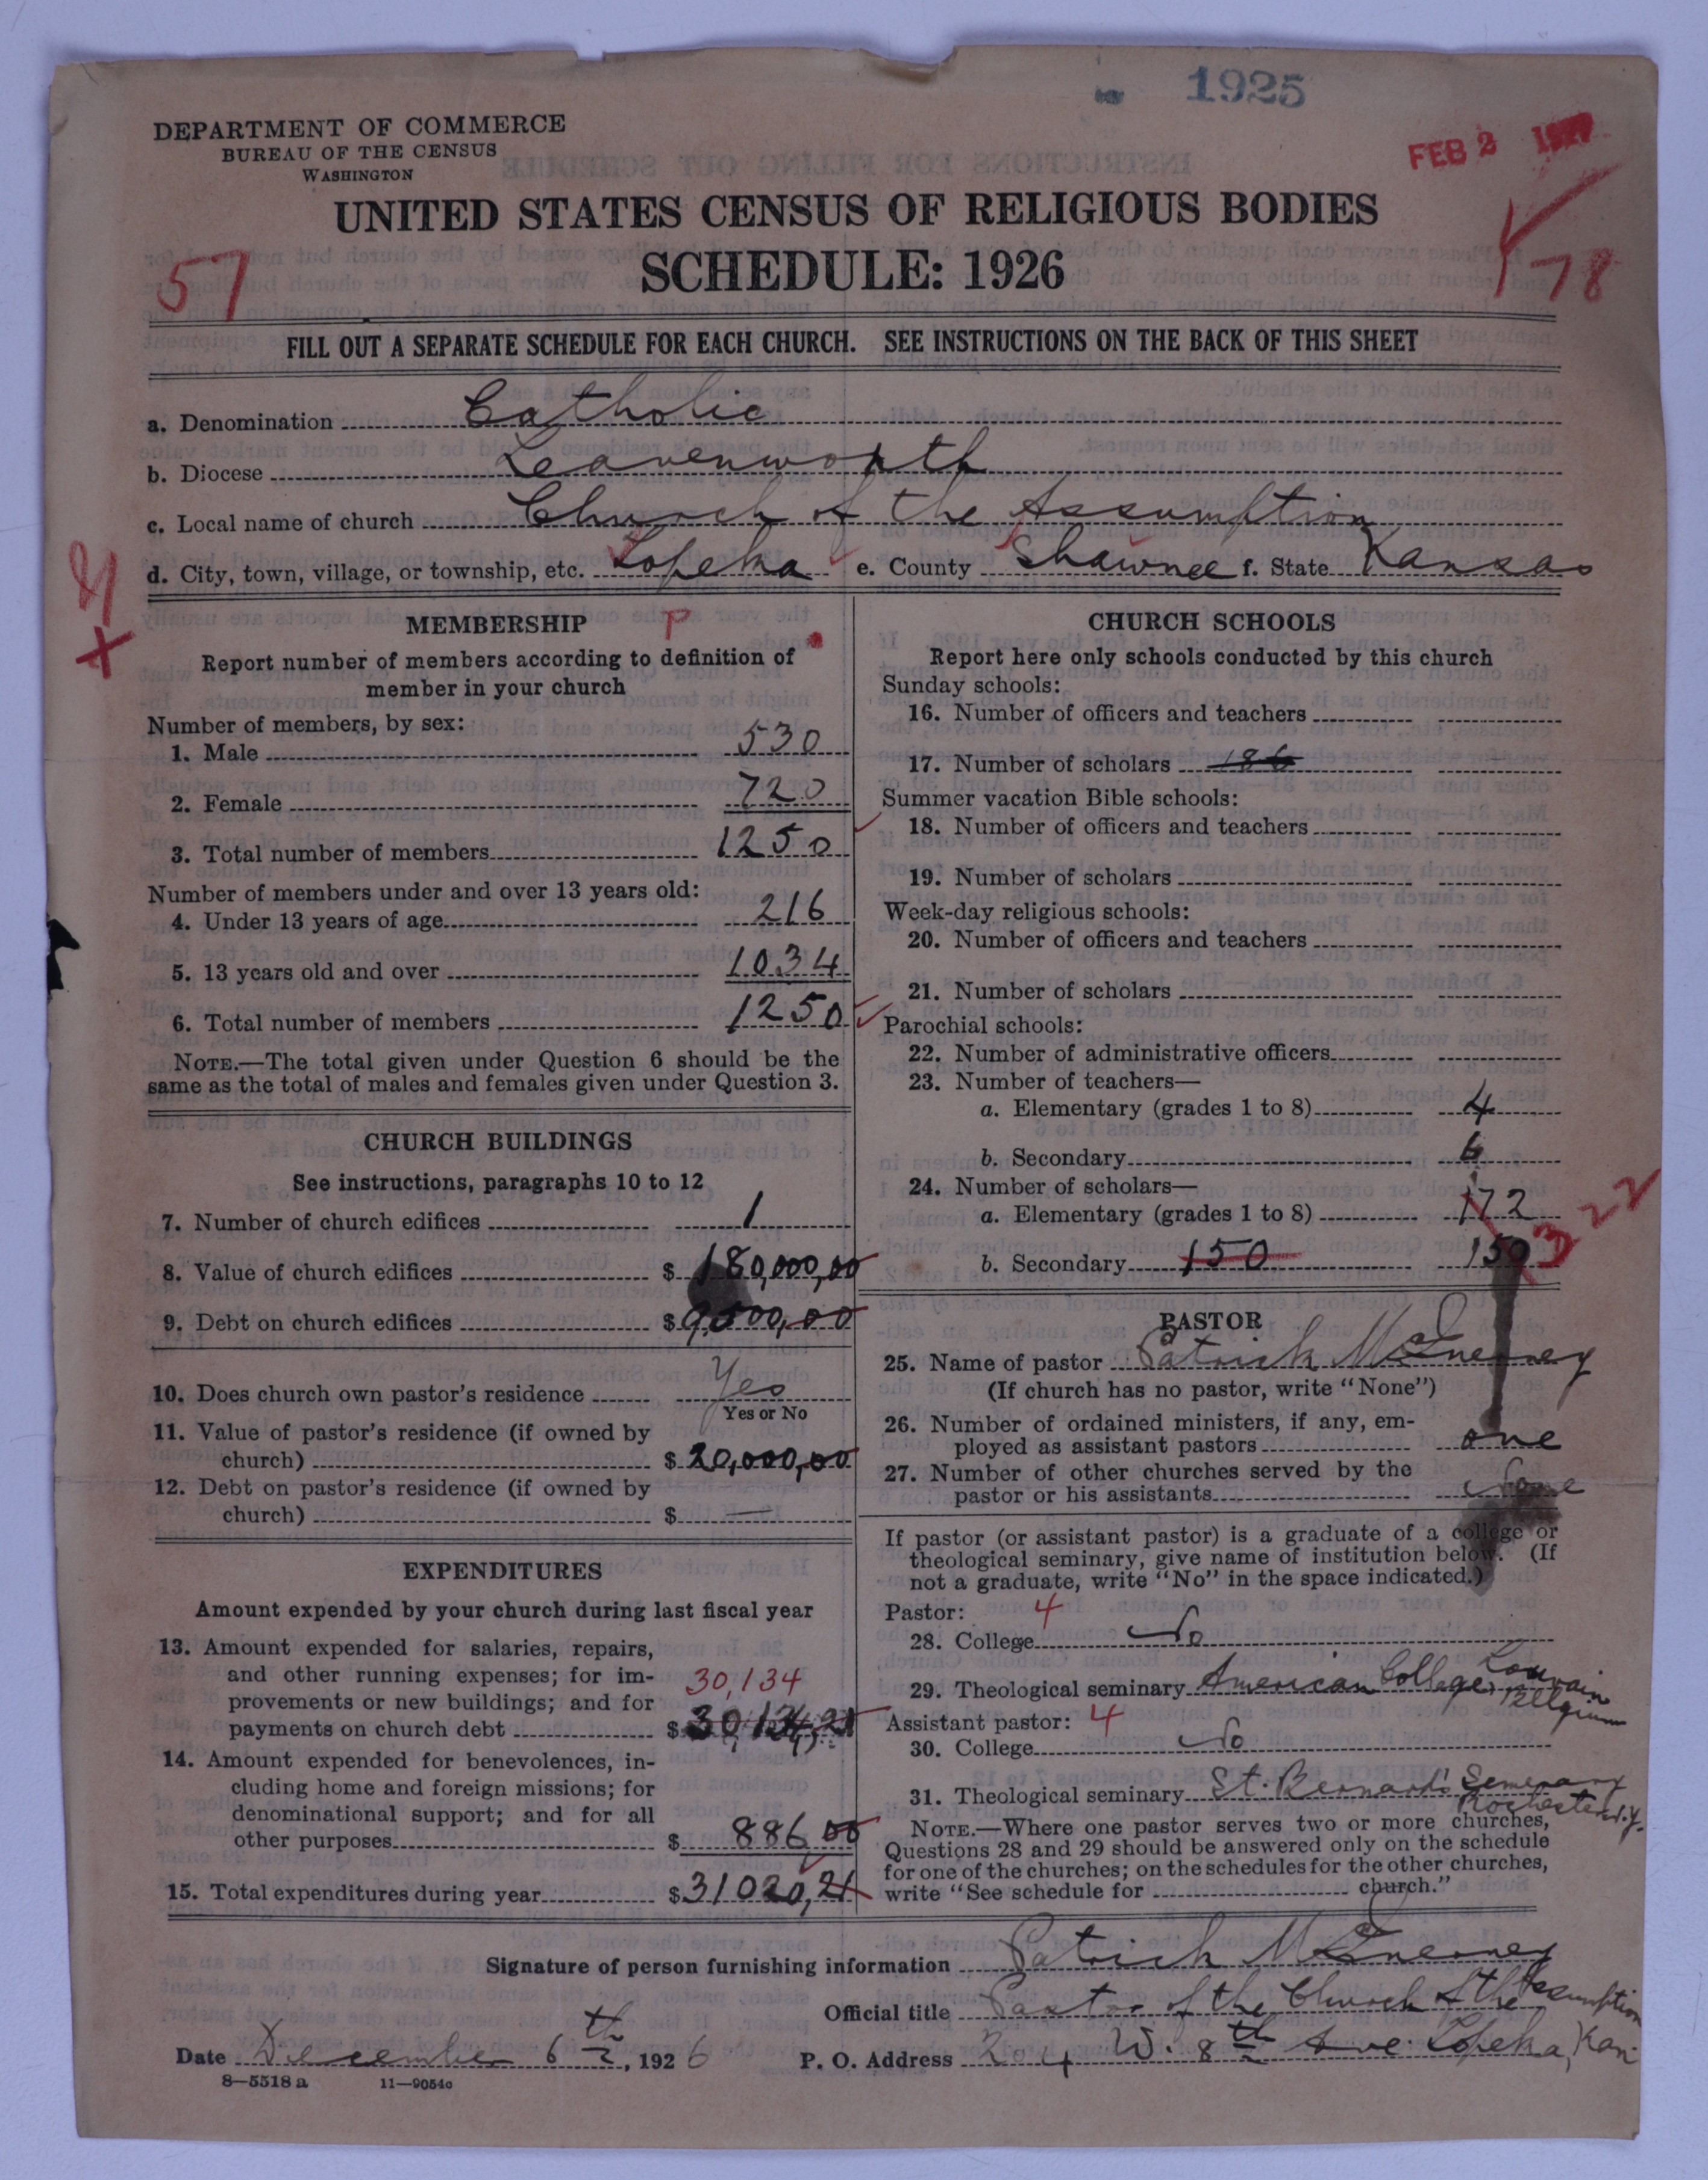 1925
DEPARTMENT OF COMMERCE
BUREAU OF THE CENSUS
WASHINGTON
FEB 2 1927
UNITED STATES CENSUS OF RELIGIOUS BODIES
SCHEDULE: 1926
57
78
FILL OUT A SEPARATE SCHEDULE FOR EACH CHURCH. SEE INSTRUCTIONS ON THE BACK OF THIS SHEET
a. Denomination Catholic
b. Diocese Leavenworth
c. Local name of church Church of the Assumption
d. City, town, village, or township, etc. Topeka e. County Shawnee f. State Kansas
MEMBERSHIP P
Report number of members according to definition of
member in your church
Number of members, by sex:
1. Male 530
2. Female 720
3. Total number of members 1250
Number of members under and over 13 years old:
4. Under 13 years of age 216
5. 13 years old and over 1034
6. Total number of members 1250
NOTE.—The total given under Question 6 should be the
same as the total of males and females given under Question 3.
CHURCH BUILDINGS
See instructions, paragraphs 10 to 12
7. Number of church edifices 1
8. Value of church edifices $ 180,000,00
9. Debt on church edifices $ 9,500,00
10. Does church own pastor's residence Yes
Yes or No
11. Value of pastor's residence (if owned by
church) $ 20,000,00
12. Debt on pastor's residence (if owned by
church) $ —
EXPENDITURES
Amount expended by your church during last fiscal year
13. Amount expended for salaries, repairs,
and other running expenses; for im-
provements or new buildings; and for 30,134
payments on church debt $ 30,134,21
14. Amount expended for benevolences, in-
cluding home and foreign missions; for
denominational support; and for all
other purposes $ 886,00
15. Total expenditures during year $ 31020,21
CHURCH SCHOOLS
Report here only schools conducted by this church
Sunday schools:
16. Number of officers and teachers
17. Number of scholars 186
Summer vacation Bible schools:
18. Number of officers and teachers
19. Number of scholars
Week-day religious schools:
20. Number of officers and teachers
21. Number of scholars
Parochial schools:
22. Number of administrative officers
23. Number of teachers—
a. Elementary (grades 1 to 8) 4
b. Secondary 6
24. Number of scholars—
a. Elementary (grades 1 to 8) 172
322
b. Secondary 150 150
PASTOR
25. Name of pastor Patrick McInerney
(If church has no pastor, write "None")
26. Number of ordained ministers, if any, em-
ployed as assistant pastors one
27. Number of other churches served by the
pastor or his assistants None
If pastor (or assistant pastor) is a graduate of a college or
theological seminary, give name of institution below. (If
not a graduate, write "No" in the space indicated.)
Pastor: 4
28. College No
29. Theological seminary American College, Louvain
Belgium
Assistant pastor: 4
30. College No
31. Theological seminary St. Bernard's Seminary
Rochester N.Y.
NOTE.—Where one pastor serves two or more churches,
Questions 28 and 29 should be answered only on the schedule
for one of the churches; on the schedules for the other churches,
write "See schedule for church."
Signature of person furnishing information Patrick McInerney
Official title Pastor of the Church of the Assumption
Date December 6th, 1926 P. O. Address 204 W. 8th Ave. Topeka, Kan
8—5518 a 11—9054c